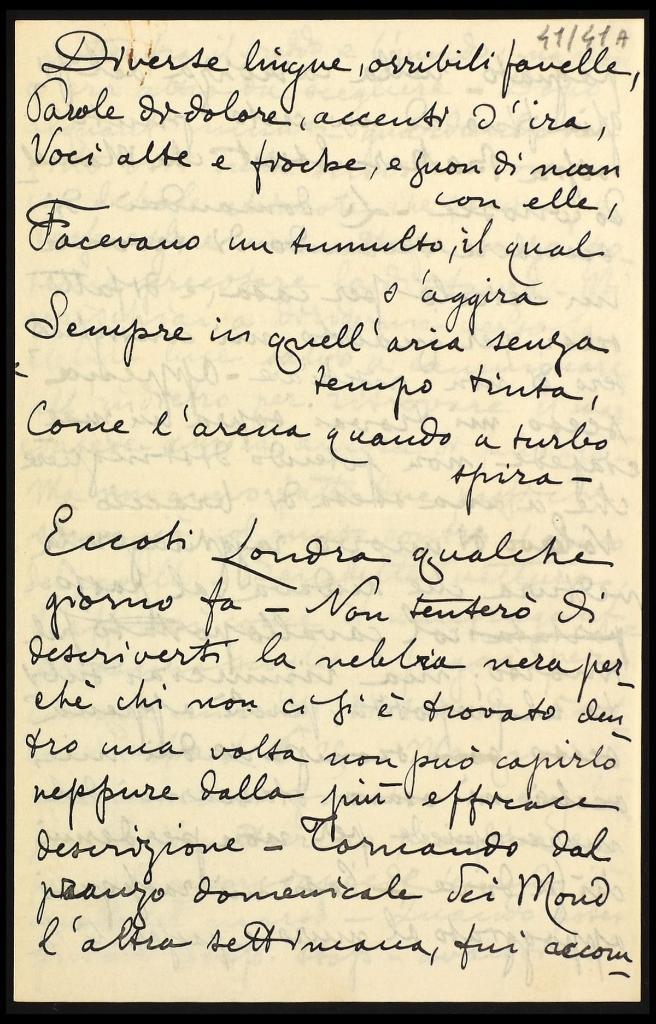 41/41A
Diverse lingue, orribili favelle,
Parole di dolore, accenti d'ira,
Voci alte e fioche, e suon di man
con elle,
Facevano un tumulto, il qual
s'aggira
Sempre in quell'aria senza
tempo tinta,
Come l'arena quando a turbo
spira –
Eccoti Londra qualche
giorno fa – Non tenterò di
descriverti la nebbia nera per-
chè chi non ci si è trovato den-
tro una volta non può capirlo
neppure dalla più efficace
descrizione – Tornando dal
pranzo domenicale dei Mond
l'altra settimana, fui accom-